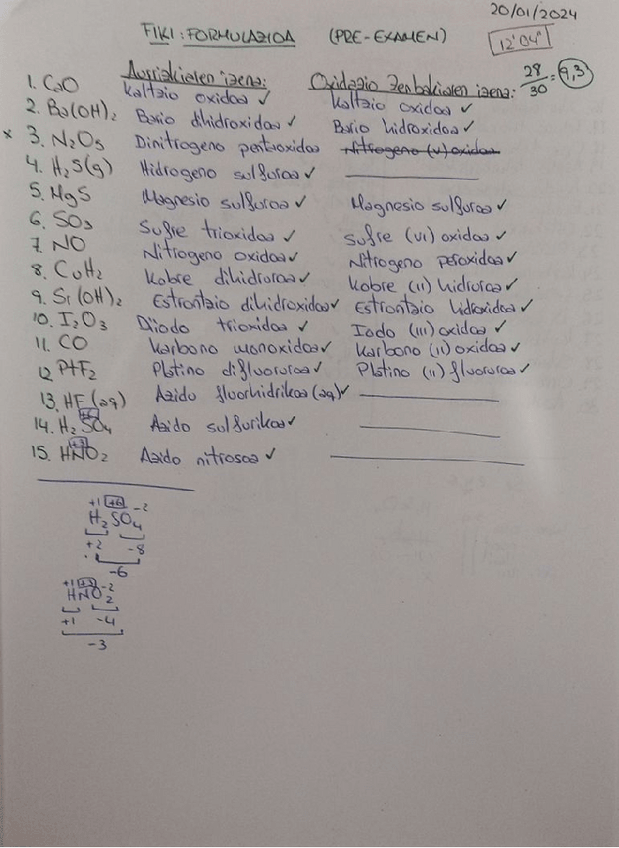 20/01/2024
FIKI: FORMULAZIOA (PRE-EXAMEN)
12'04"
Aurrizkialen izena: Oxidazio Zenbakialen izena: 28/30 = 9,3
1. CaO Kaltzio oxidoa ✓ Kaltzio oxidoa ✓
2. Ba(OH)₂ Bario dihidroxidoa ✓ Bario hidroxidoa ✓
x 3. N₂O₅ Dinitrogeno pentaoxidoa Nitrogeno (V) oxidoa
4. H₂S(g) Hidrogeno sulfuroa ✓
5. MgS Magnesio sulfuroa ✓ Magnesio sulfuroa ✓
6. SO₃ Sufre trioxidoa ✓ Sufre (VI) oxidoa ✓
7. NO Nitrogeno oxidoa ✓ Nitrogeno peroxidoa ✓
8. CuH₂ Kobre dihidruroa ✓ Kobre (II) hidruroa ✓
9. Sr(OH)₂ Estrontzio dihidroxidoa ✓ Estrontzio hidroxidoa ✓
10. I₂O₃ Diiodo trioxidoa ✓ Iodo (III) oxidoa ✓
11. CO Karbono monoxidoa ✓ Karbono (II) oxidoa ✓
12. PtF₂ Platino difluoruroa ✓ Platino (II) fluoruroa ✓
13. HF(aq) Azido fluorhidrikoa (aq) ✓
+6
14. H₂SO₄ Azido sulfurikoa ✓
+3
15. HNO₂ Azido nitrosoa ✓
+1 +6 -2
H₂SO₄
+2 -8
-6
+1 +3 -2
HNO₂
+1 -4
-3